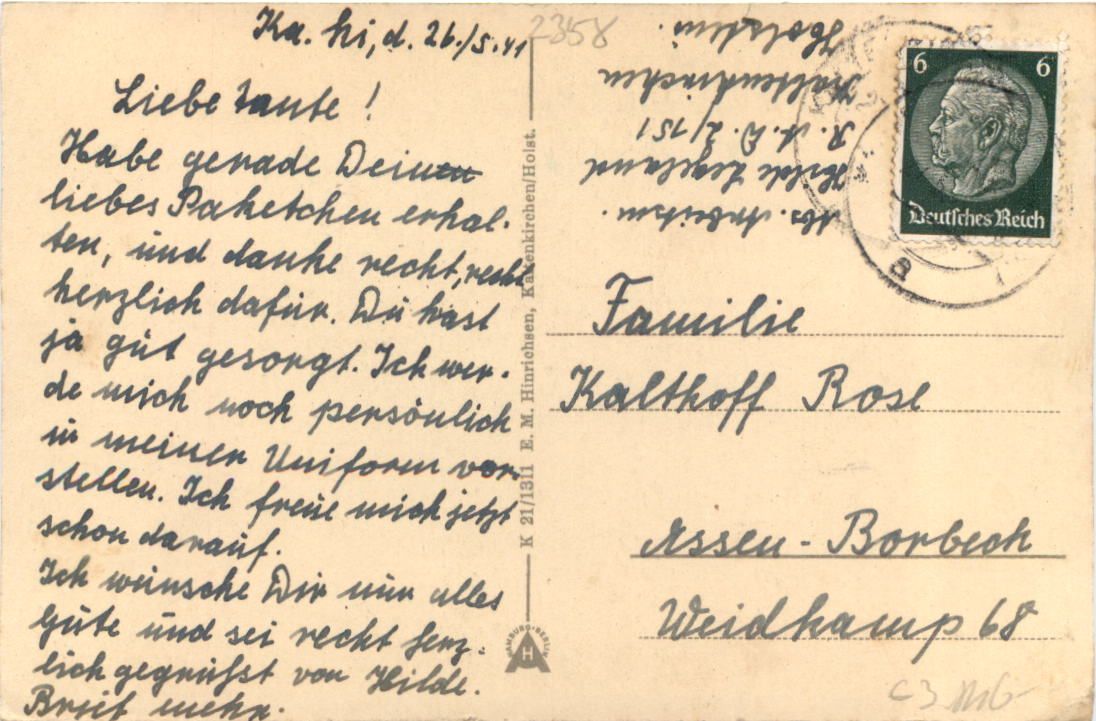 Ka. ki, d. 26./5.41
Liebe Tante!
Habe gerade Dein
liebes Paketchen erhal-
ten, und danke recht, recht
herzlich dafür. Du hast
ja gut gesorgt. Ich wer-
de mich noch persönlich
in meiner Uniform vor-
stellen. Ich freue mich jetzt
schon darauf.
Ich wünsche Dir nun alles
Gute und sei recht herz-
lich gegrüßt von Hilde.
Brief mehr.
K 21/1311 E. M. Hinrichsen, Kaltenkirchen/Holst.
HAMBURG-BERLIN
H
2358
Abs.
Hilde
R. A. D. 2/151
Kaltenkirchen
Holstein.
6 6
Deutsches Reich
a
Familie
Kalthoff Rose
Essen-Borbeck
Weidkamp 68